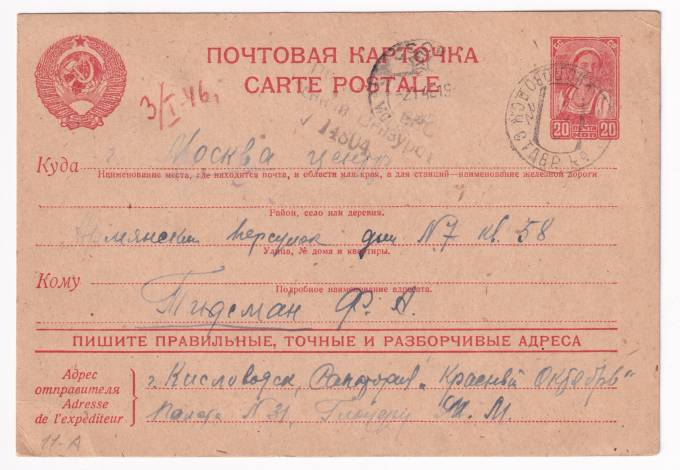 ПОЧТОВАЯ КАРТОЧКА
CARTE POSTALE
3/I 46г.
20 ПОЧТА КОП 20
14804
Куда г Москва центр
Наименование места, где находится почта, и области или края, а для станций—наименование железной дороги
Район, село или деревня.
Армянский переулок дом N7 кв. 58
Улица, № дома и квартиры.
Кому
Подробное наименование адресата.
Тидеман Ф. А.
ПИШИТЕ ПРАВИЛЬНЫЕ, ТОЧНЫЕ И РАЗБОРЧИВЫЕ АДРЕСА
Адрес отправителя
Adresse de l'expéditeur
г. Кисловодск, Санатория „Красный Октябрь"
Палата N 31, М. М.
11-А